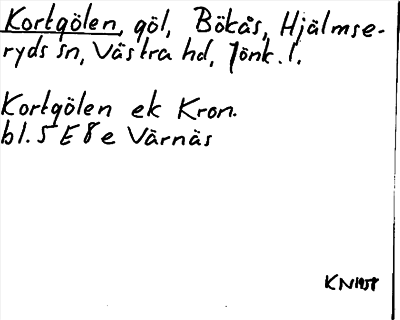 Kortgölen, göl, Bökås, Hjälmse-
ryds sn, Västra hd, Jönk. l.
Kortgölen ek Kron.
bl. 5 E 8 e Värnäs
KN 1958